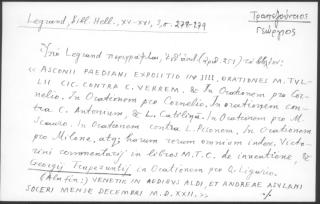 Legrand, Bibl. Hell., XV-XVI, 3, σ. 278-279
Τραπεζούντιος
Γεώργιος
Ὑπὸ Legrand περιγράφεται,
τὸ βιβλίον:
« ASCONII PAEDIANI EXPOSITIO IN IIII, ORATIONES M. TVL-
LII CIC. CONTRA C. VERREM. & In Orationem pro Cor-
nelio. In Orationem pro Cornelio. In orationem con-
tra C. Antonium, & L. Catilinā. In Orationem pro M.
Scauro. In Orationem contra L. Pisonem. In Orationem
pro Milone. atq; harum rerum omnium index. Victo-
rini commentarij in libros M.T.C. de inuentione, &
Georgij Trapezuntij in Orationem pro Q. Ligario.
(Ἀλλ. fin:) VENETIIS IN AEDIBVS ALDI, ET ANDREAE ASVLANI
SOCERI MENSE DECEMBRI M.D.XXII.»